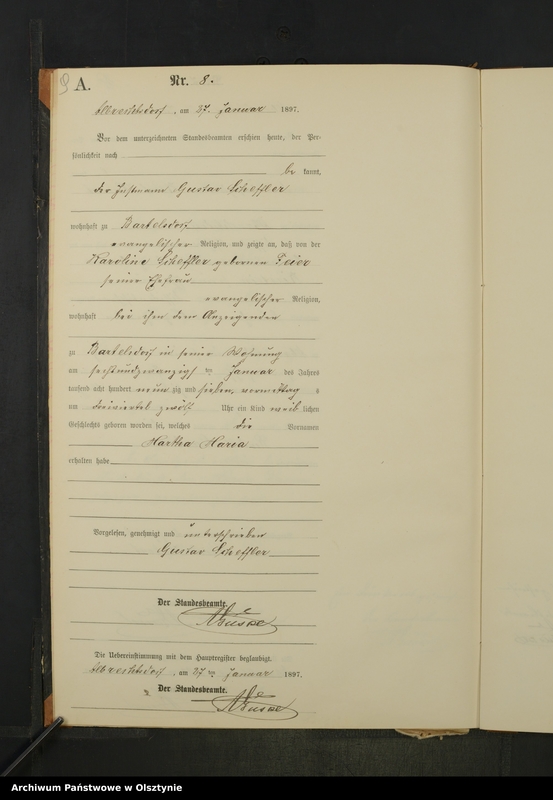 A.
Nr. 8.
Albrechtsdorf, am 27. Januar 1897.
Vor dem unterzeichneten Standesbeamten erschien heute, der Per-
sönlichkeit nach
be kannt,
der Instmann Gustav Scheffler
wohnhaft zu Bartelsdorf
evangelischer Religion, und zeigte an, daß von der
Karoline Scheffler geborenen Feier
seiner Ehefrau
evangelischer Religion,
wohnhaft bei ihm dem Anzeigenden
zu Bartelsdorf in seiner Wohnung
am sechsundzwanzigsten Januar des Jahres
tausend acht hundert neun zig und sieben, vormittags
um dreiviertel zwölf Uhr ein Kind weib lichen
Geschlechts geboren worden sei, welches die Vornamen
Martha Maria
erhalten habe
Vorgelesen, genehmigt und unterschrieben
Gustav Scheffler
Der Standesbeamte.
Die Uebereinstimmung mit dem Hauptregister beglaubigt.
Albrechtsdorf, am 27ten Januar 1897.
Der Standesbeamte.
Archiwum Państwowe w Olsztynie